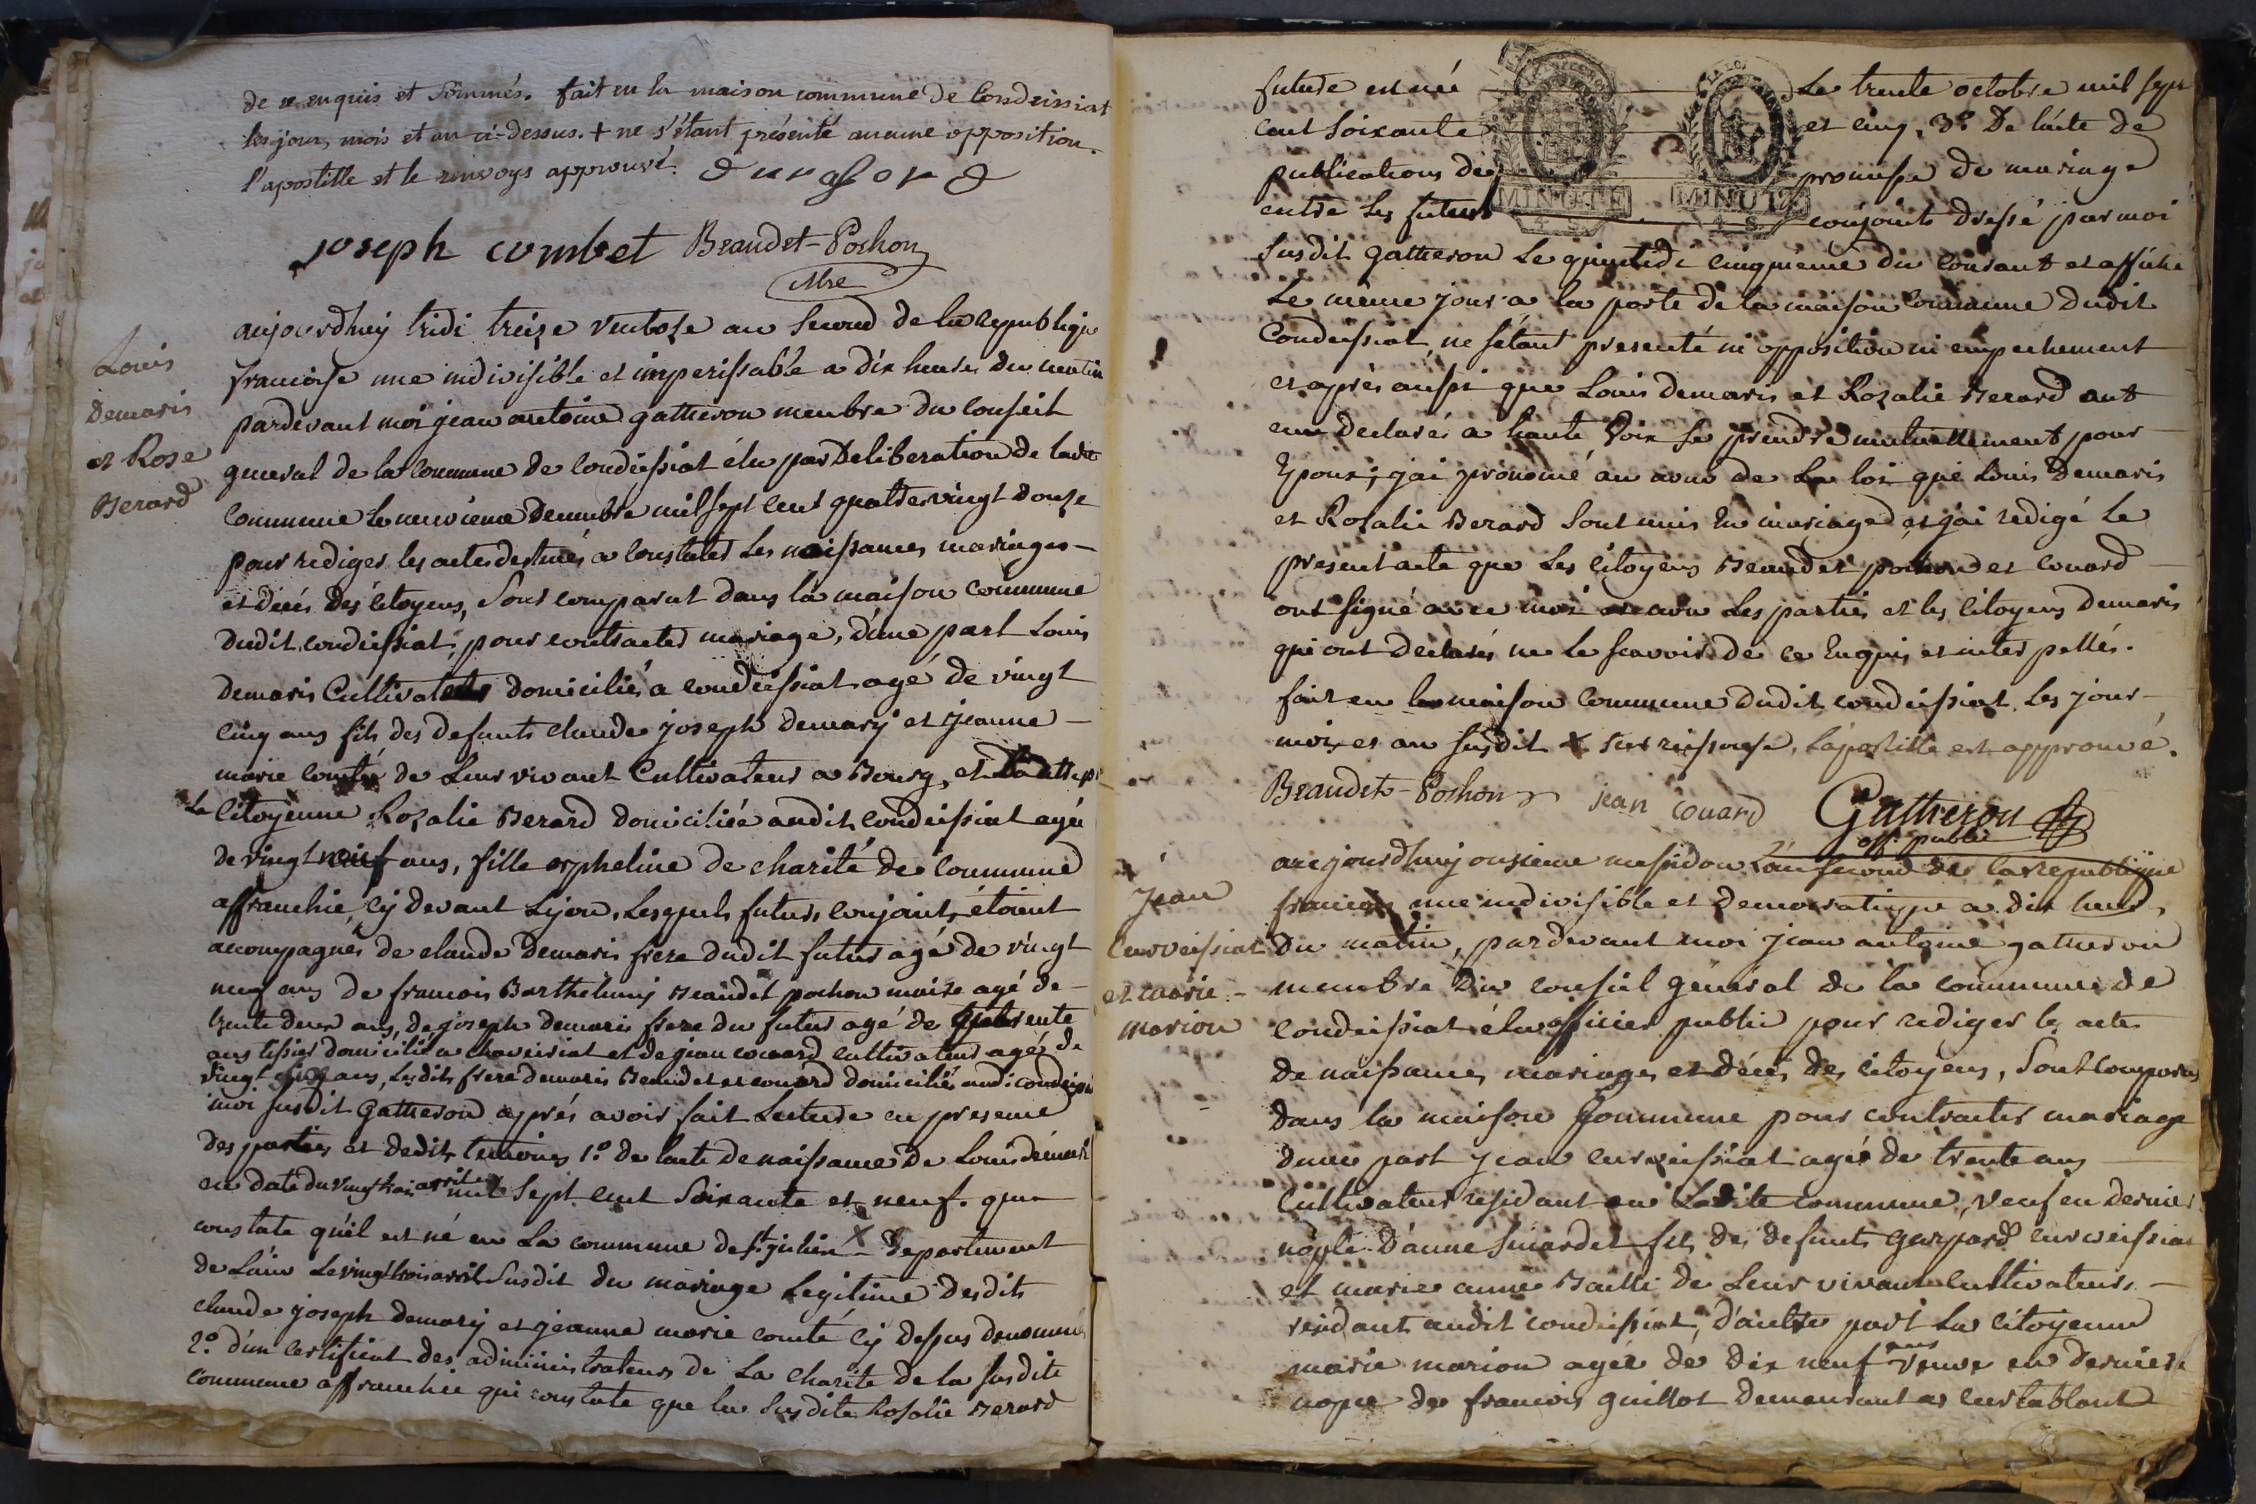 de ce enquis et sommés. fait en la maison commune de Condeissiat
les jour, mois et an ci-dessus. + ne s'étant présenté aucune opposition.
l'apostille et le renvoys approuvé.
joseph combet Beaudet-Pochon
Mre
Louis
Demaris
et Rose
Berard
aujourdhuy tridi treize ventose an second de la republique
francoise une indivisible et imperissable a dix heures du matin
pardevant moi jean antoine gatheron membre du conseil
general de la commune de condeissiat élu par Deliberation de ladte
commune le neuvieme Decembre mil sept cent quatre vingt douze
pour rediger les actes destinés a constater les naissances mariages
et decés des citoyens, Sont comparut dans la maison commune
dudit condeissiat, pour contracter mariage, d'une part Louis
demaris Cultivateur domicilié a condeissiat agé de vingt
cinq ans fils des defunts claude joseph demary et jeanne
marie comté de Leur vivant Cultivateurs a Bourg, et
la citoyenne Rozalie Berard domiciliée audit condeissiat agée
de vingt neuf ans, fille orpheline de charité de commune
affranchie cy devant Lyon, Lesquels futurs conjoints étoient
accompagnés de claude Demaris frere dudit futur agé de vingt
neuf ans de francois Barthelemy Beaudet pochon maire agé de
trente deux ans, de joseph demaris frere du futur agé de trente
ans tissier domicilié a chaveiriat et de jean couard cultivateur agé de
vingt ans, Lesdits frere demaris Beaudet et couard domiciliés audi condeissi
moi susdit Gatheron aprés avoir fait Lecture en presence
des parties et dedits temoins 1.º de lacte de naissance de Louis demaris
en date du vingt trois avril mil sept cent soixante et neuf. que
constate qu'il est né en La commune de st julien X departement
de Lain Le vingt trois avril susdit du mariage Legitime desdits
claude joseph demary et jeanne marie comté cy dessus denommés
2.º d'un certificat des administrateurs de La charite de la susdite
commune affranchie qui constate que la susdite Rosalie Berard
future est née Le trente octobre mil sept
cent soixante et cinq, 3.º De lacte de
publications de promesse de mariage
entre les futurs conjoints dressé par moi
MINUTE
MINUTE
susdit gatheron Le quintidi cinquieme du courant et affiché
Le meme jour a la porte de la maison commune dudit
Condeissiat, ne s'étant presenté ni opposition ni empechement
et aprés aussi que Louis demaris et Rozalie Berard ont
eu declarés a haute voix se prendre mutuellement pour
Epoux; j'ai prononcé au nom de La loi que Louis Demaris
et Rosalie Berard sont unis en mariage et j'ai redigé Le
present acte que Les citoyens Beaudet pochon et couard
ont signé avec moi non Les parties et les citoyens demaris
qui ont declarés ne le scavoir de ce Enquis et interpellés.
fait en la maison commune dudit condeissiat Les jour
mois et an susdit X sur ressouse, Lapostille est approuvé.
Beaudet-Pochon jean couard Gatheron
off. public
Jean
Curveissiat
et marie
marion
aujourdhuy onzieme messidor L'an second de la republique
francois une indivisible et democratique a dix heures
du matin, pardevant moi jean antoine gatheron
membre du conseil géneral de la commune de
condeissiat élu officier public pour rediger les actes
de naissances, mariages et décés des citoyens, Sont comparus
dans la maison Commune pour contracter mariage
dune part jean curveissiat agé de trente ans
Cultivateur residant en Ladite commune, veuf en dernier
nople D'anne suardet fils des defunts gaspard curveissiat
et marie anne Bailli de Leur vivant cultivateurs
residants audit condeissiat, d'autre part La citoyenne
marie marion agée de dix neuf ans veuve en derniere
nopce de francois guillot demeurant a curtablout